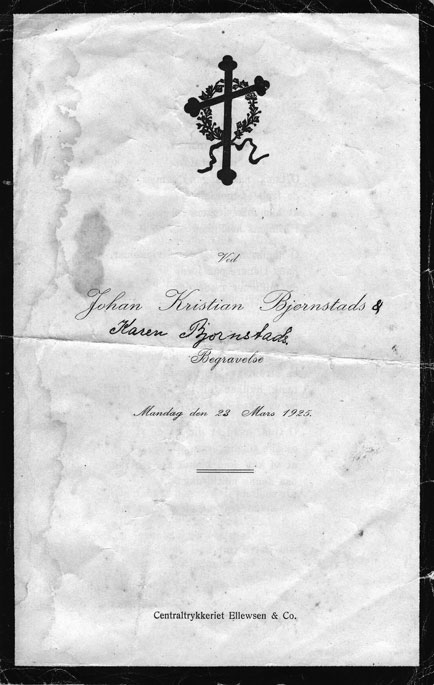 Ved
Johan Kristian Bjørnstads &
Karen Bjørnstads.
Begravelse
Mandag den 23 Mars 1925.
Centraltrykkeriet Ellewsen & Co.